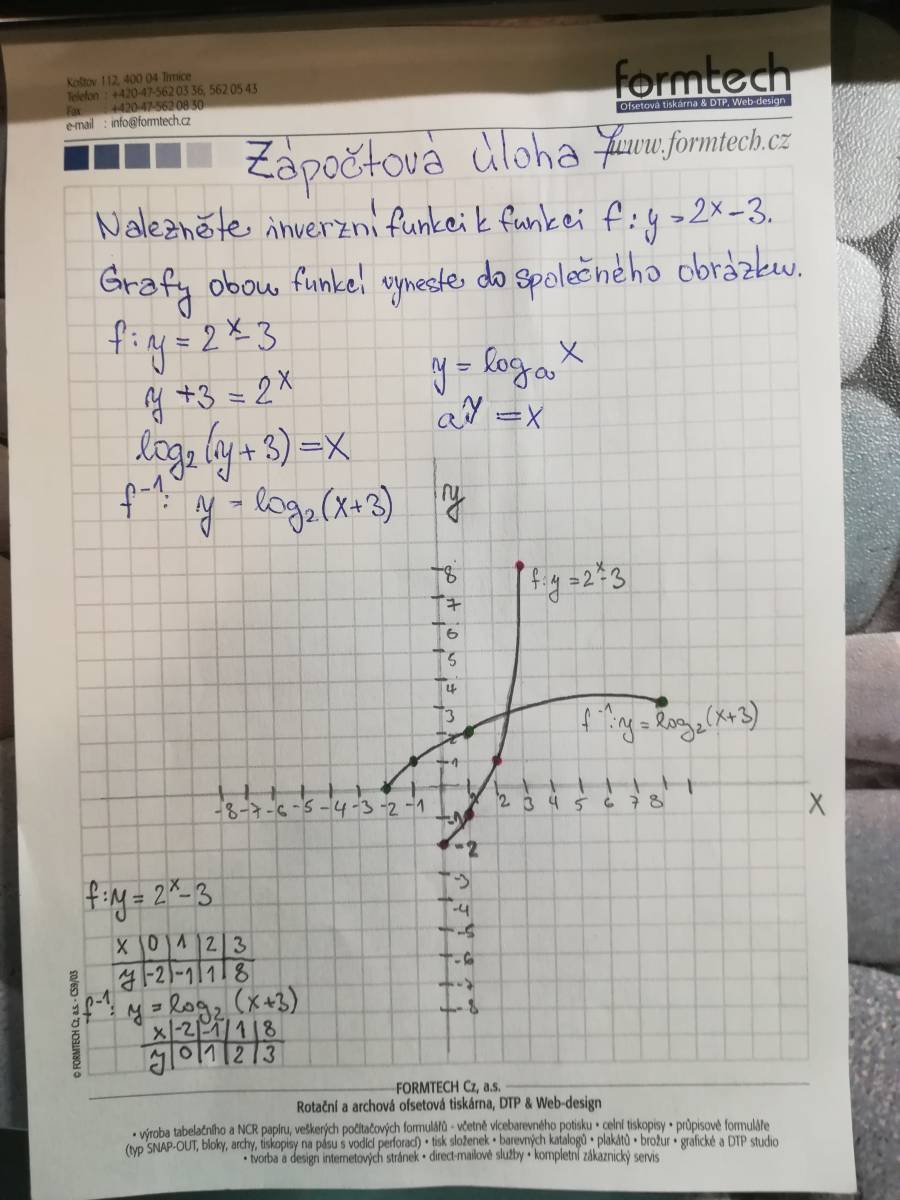 Koštov 112, 400 04 Trmice
Telefon : +420-47-562 03 36, 562 05 43
Fax : +420-47-562 08 30
e-mail : info@formtech.cz
formtech
Ofsetová tiskárna & DTP, Web-design
www.formtech.cz
Zápočtová úloha 7
Nalezněte inverzní funkci k funkci f: y = 2^x - 3.
Grafy obou funkcí vyneste do společného obrázku.
f: y = 2^x - 3
y + 3 = 2^x
log₂(y+3) = x
f⁻¹: y = log₂(x+3)
y = logₐ x
a^y = x
y
8
7
6
5
4
3
2
1
-8 -7 -6 -5 -4 -3 -2 -1 1 2 3 4 5 6 7 8
x
-1
-2
-3
-4
-5
-6
-7
-8
f: y = 2^x - 3
f⁻¹: y = log₂(x+3)
f: y = 2^x - 3
x | 0 | 1 | 2 | 3
y | -2 | -1 | 1 | 8
f⁻¹: y = log₂(x+3)
x | -2 | -1 | 1 | 8
y | 0 | 1 | 2 | 3
© FORMTECH Cz, a.s. - CS9/03
FORMTECH Cz, a.s.
Rotační a archová ofsetová tiskárna, DTP & Web-design
• výroba tabelačního a NCR papíru, veškerých počítačových formulářů - včetně vícebarevného potisku • celní tiskopisy • průpisové formuláře
(typ SNAP-OUT, bloky, archy, tiskopisy na pásu s vodící perforací) • tisk složenek • barevných katalogů • plakátů • brožur • grafické a DTP studio
• tvorba a design internetových stránek • direct-mailové služby • kompletní zákaznický servis